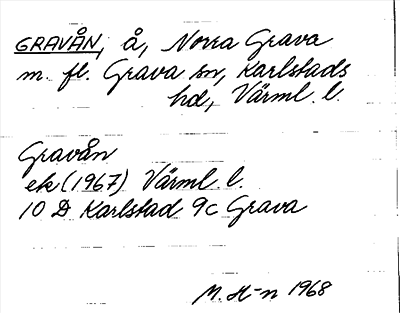 GRAVÅN, å, Norra Grava
m. fl. Grava sn, Karlstads
hd, Värml. l.
Gravån
ek (1967) Värml. l.
10 D Karlstad 9c Grava
M. H-n 1968